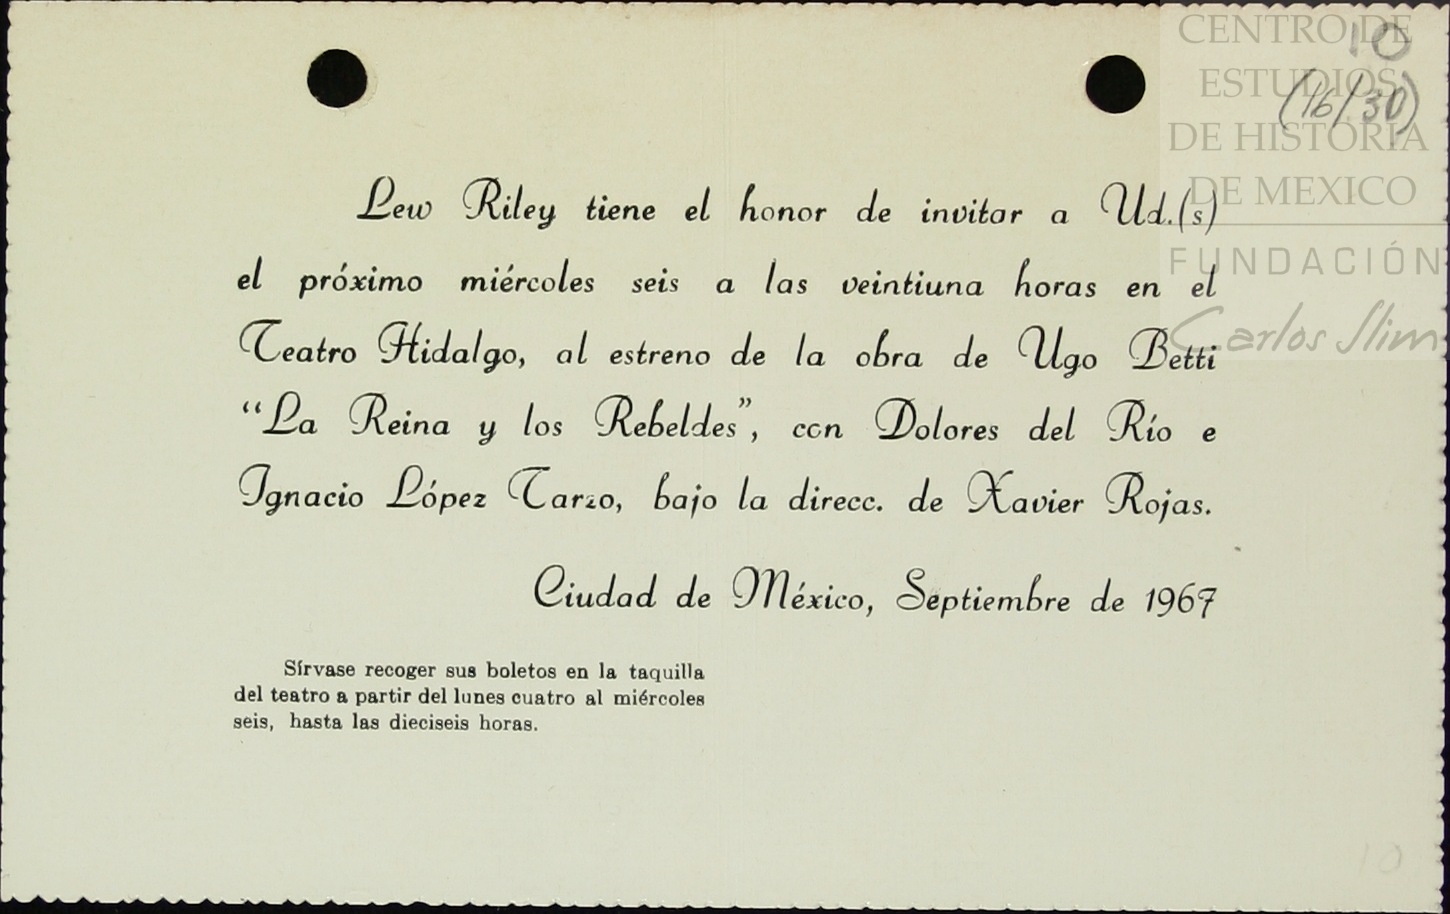 CENTRO DE
ESTUDIOS
DE HISTORIA
DE MEXICO
FUNDACIÓN
Carlos Slim
10
(16/30)
Lew Riley tiene el honor de invitar a Ud.(s)
el próximo miércoles seis a las veintiuna horas en el
Teatro Hidalgo, al estreno de la obra de Ugo Betti
“La Reina y los Rebeldes”, con Dolores del Río e
Ignacio López Tarso, bajo la direcc. de Xavier Rojas.
Ciudad de México, Septiembre de 1967
Sírvase recoger sus boletos en la taquilla
del teatro a partir del lunes cuatro al miércoles
seis, hasta las dieciseis horas.
10